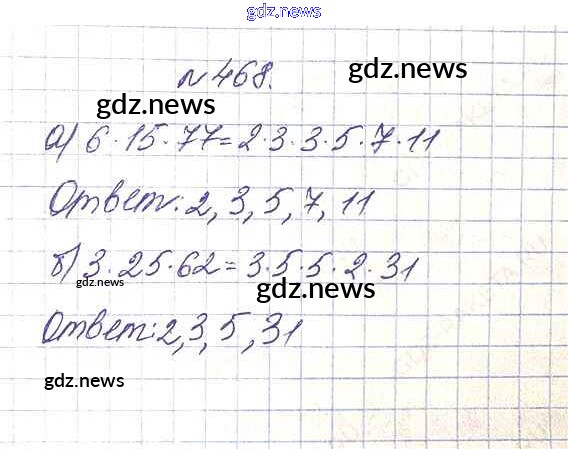 gdz.news
№468.
gdz.news
gdz.news
а) 6·15·77=2·3·3·5·7·11
Ответ: 2, 3, 5, 7, 11
б) 3·25·62=3·5·5·2·31
gdz.news
gdz.news
Ответ: 2, 3, 5, 31
gdz.news